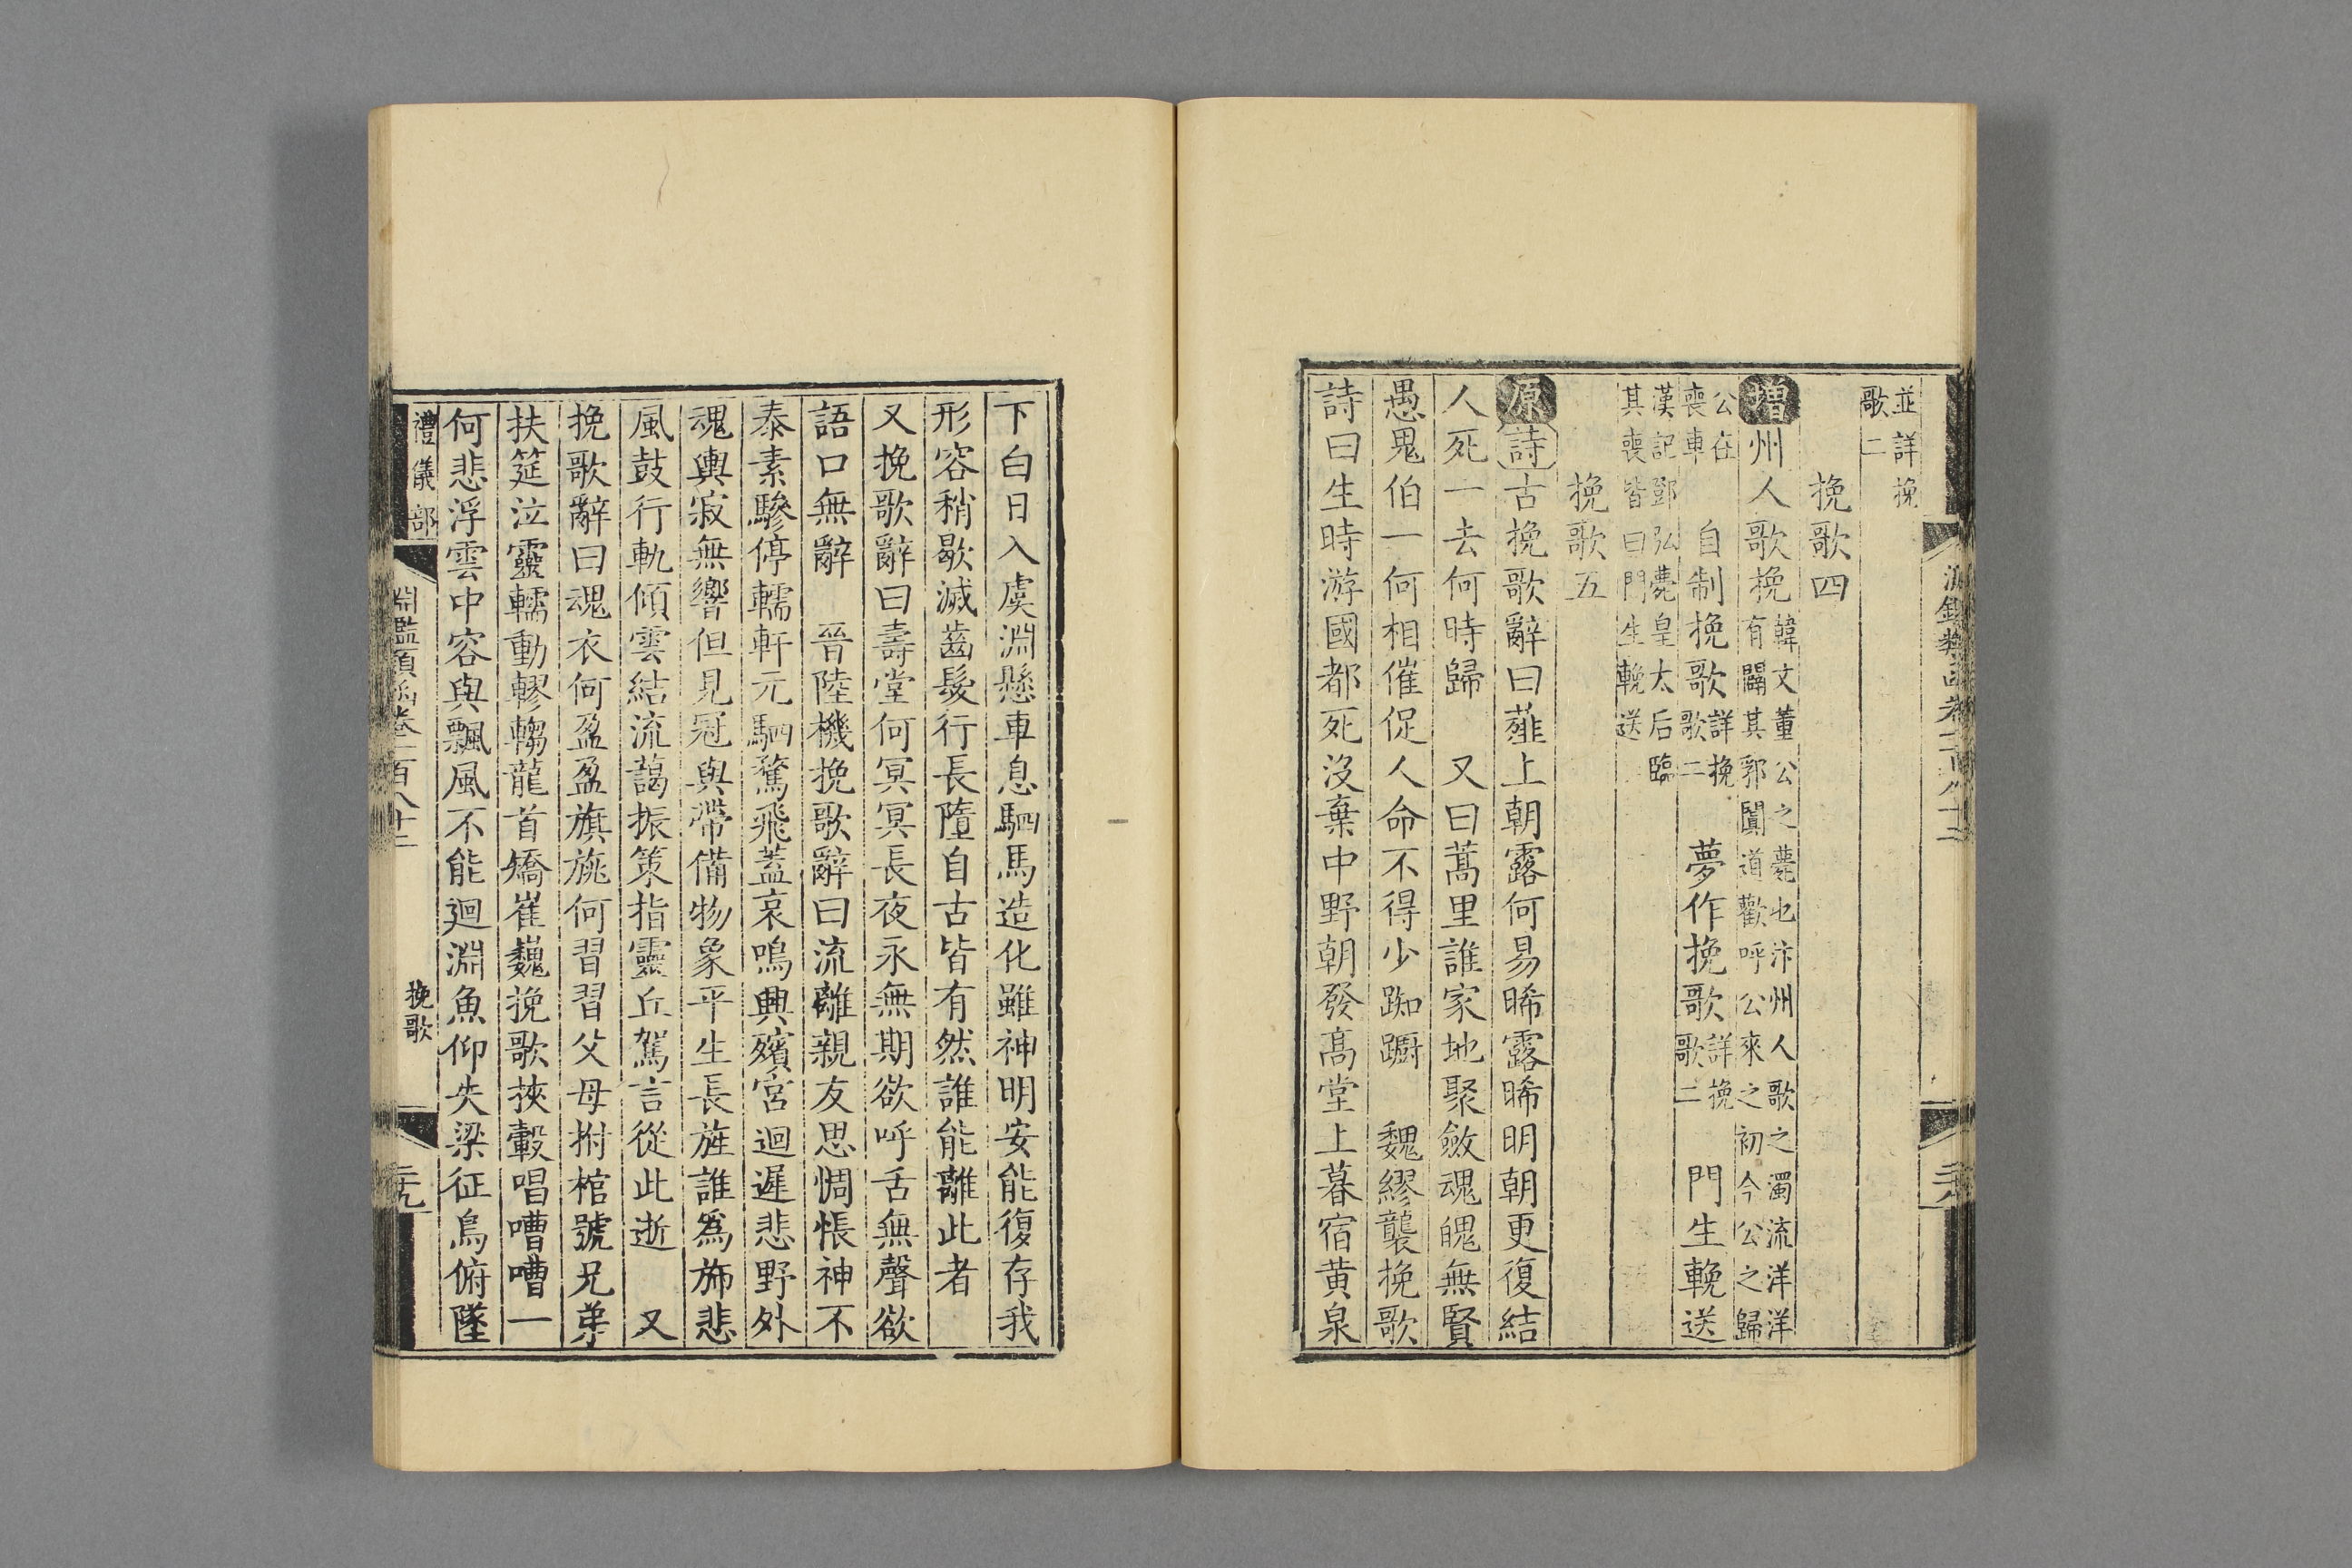 並詳挽
歌二
挽歌四
增州人歌挽韓文董公之薨也汴州人歌之濁流洋洋
有闢其郛闐道歡呼公來之初今公之歸
公在
喪車
自制挽歌詳挽
歌二
夢作挽歌詳挽
歌二
門生輓送
漢記鄧弘薨皇太后臨
其喪皆曰門生輓送
挽歌五
原詩古挽歌辭曰薤上朝露何易晞露晞明朝更復結
人死一去何時歸 又曰蒿里誰家地聚斂魂魄無賢
愚鬼伯一何相催促人命不得少踟躕 魏繆襲挽歌
詩曰生時游國都死沒棄中野朝發高堂上暮宿黄泉
下白日入虞淵懸車息駟馬造化雖神明安能復存我
形容稍歇滅齒髮行長墮自古皆有然誰能離此者
又挽歌辭曰壽堂何冥冥長夜永無期欲呼舌無聲欲
語口無辭 晉陸機挽歌辭曰流離親友思惆悵神不
泰素驂停轜軒元駟騖飛蓋哀鳴興殯宮迴遲悲野外
魂輿寂無響但見冠與帶備物象平生長旌誰爲旆悲
風鼓行軌傾雲結流藹振策指靈丘駕言從此逝 又
挽歌辭曰魂衣何盈盈旗旐何習習父母拊棺號兄弟
扶筵泣靈轜動轇轕龍首矯崔巍挽歌挾轂唱嘈嘈一
何悲浮雲中容與飄風不能迴淵魚仰失梁征鳥俯墜
禮儀部
淵鑑類函卷一百八十二
挽歌
二十九